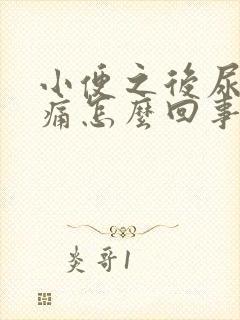 小便之後尿
痛怎麼回事
炎哥1